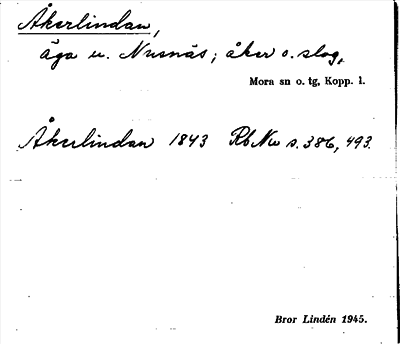 Åkerlindan,
äga u. Nusnäs; åker o. slog,
Mora sn o. tg, Kopp. l.
Åkerlindan 1843 Rb Nu s. 386, 493.
Bror Lindén 1945.